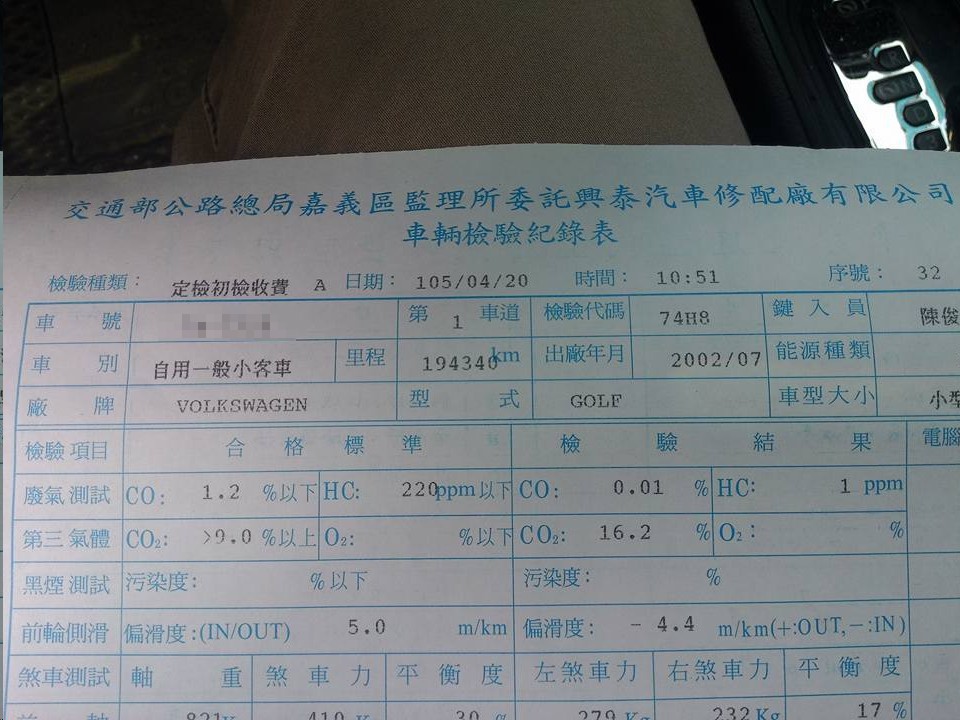 交通部公路總局嘉義區監理所委託興泰汽車修配廠有限公司
車輛檢驗紀錄表
檢驗種類： 定檢初檢收費 A 日期： 105/04/20 時間： 10:51 序號： 32
車號 第 1 車道 檢驗代碼 74H8 鍵入員 陳俊
車別 自用一般小客車 里程 194340 km 出廠年月 2002/07 能源種類
廠牌 VOLKSWAGEN 型式 GOLF 車型大小 小型
檢驗項目 合格標準 檢驗結果 電腦
廢氣測試 CO: 1.2 %以下 HC: 220 ppm以下 CO: 0.01 % HC: 1 ppm
第三氣體 CO₂: >9.0 %以上 O₂: %以下 CO₂: 16.2 % O₂: %
黑煙測試 污染度: %以下 污染度: %
前輪側滑 偏滑度:(IN/OUT) 5.0 m/km 偏滑度: - 4.4 m/km(+:OUT,-:IN)
煞車測試 軸重 煞車力 平衡度 左煞車力 右煞車力 平衡度
前軸 821 410 30 % 279 Kg 232 Kg 17 %